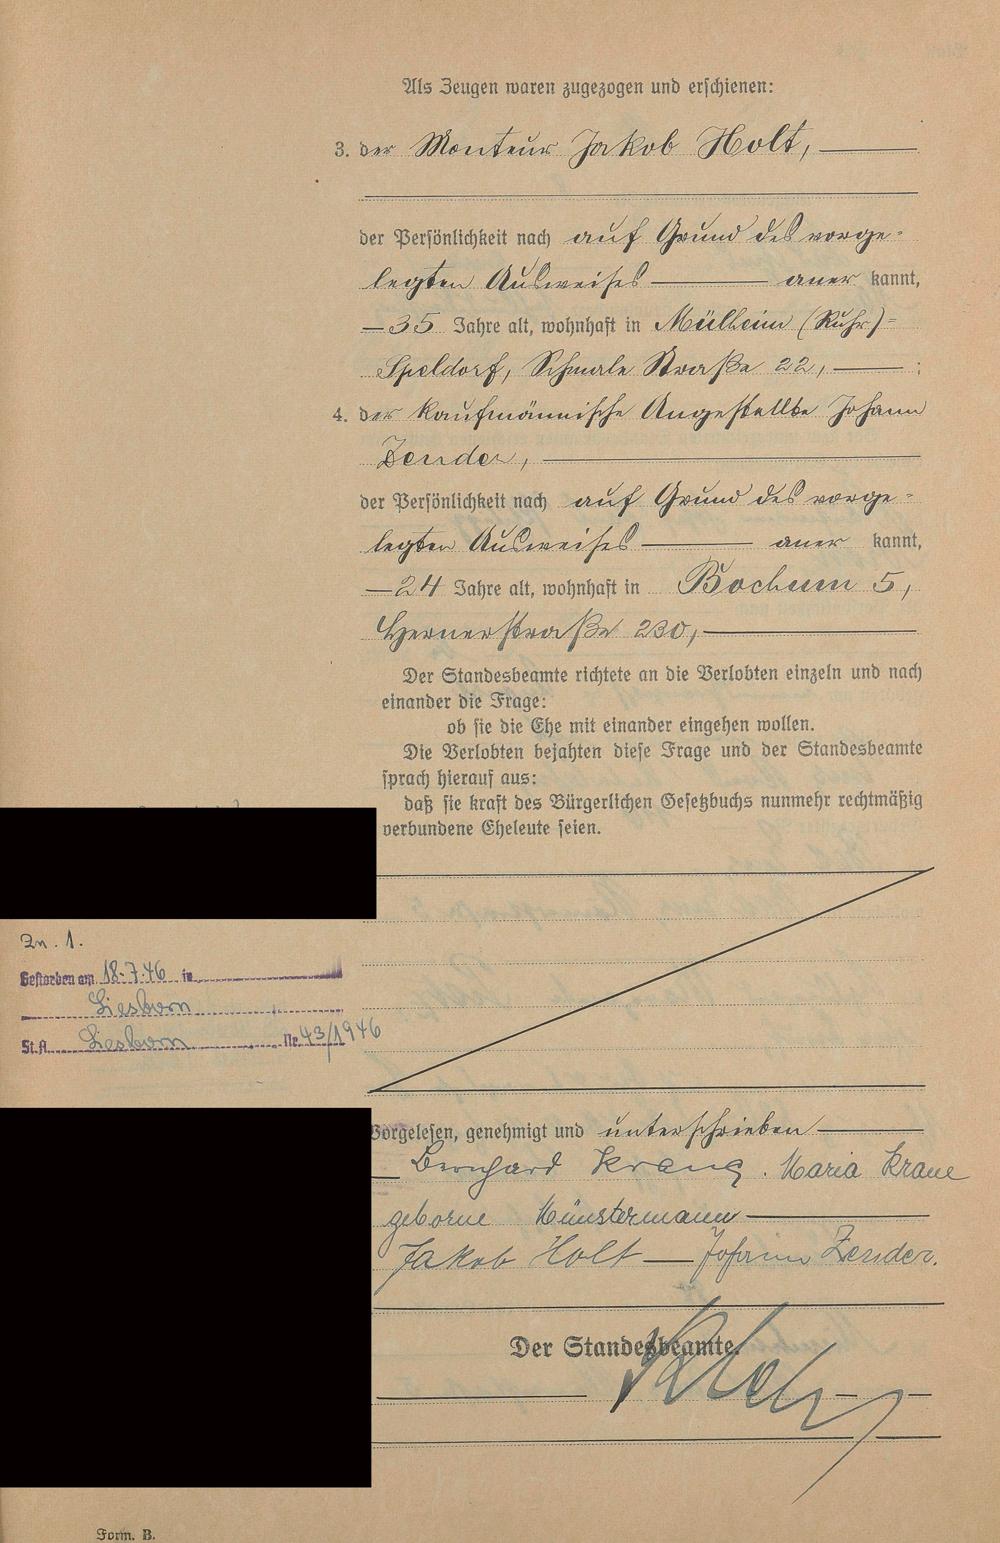 Als Zeugen waren zugezogen und erschienen:
3. der Monteur Jakob Holt,
der Persönlichkeit nach auf Grund des vorge-
legten Ausweises aner kannt,
35 Jahre alt, wohnhaft in Mülheim (Ruhr)-
Speldorf, Schmale Straße 22, ;
4. der kaufmännische Angestellte Johann
Zender,
der Persönlichkeit nach auf Grund des vorge-
legten Ausweises aner kannt,
24 Jahre alt, wohnhaft in Bochum 5,
Hernerstraße 230,
Der Standesbeamte richtete an die Verlobten einzeln und nach
einander die Frage:
ob sie die Ehe mit einander eingehen wollen.
Die Verlobten bejahten diese Frage und der Standesbeamte
sprach hierauf aus:
daß sie kraft des Bürgerlichen Gesetzbuchs nunmehr rechtmäßig
verbundene Eheleute seien.
Zu. 1.
Gestorben am 18.7.46 in
Liesborn
St.A. Liesborn Nr. 43/1946
Vorgelesen, genehmigt und unterschrieben
Bernhard Krane. Maria Krane
geborne Münstermann
Jakob Holt — Johann Zender.
Der Standesbeamte.
Form. B.